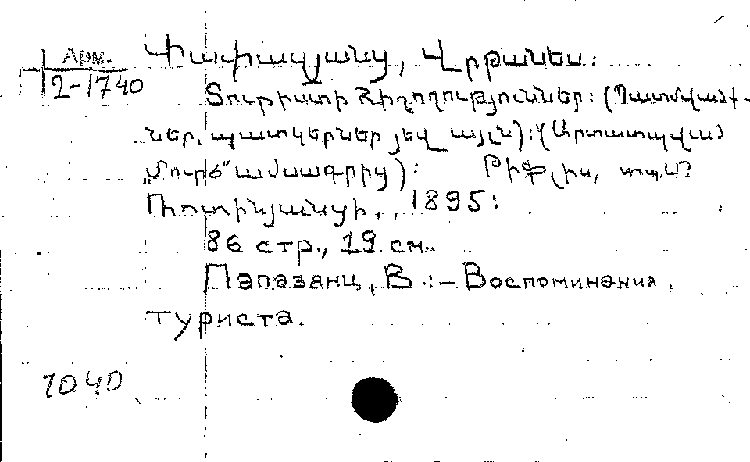 Арм.
2-1740
Փափազյանց, Վրթանես:
Տուրիստի Հիշողություններ: (Պատմվածք-
ներ, պատկերներ յեվ այլն): (Արտատպված
„Մուրճ" ամսագրից): Թիֆլիս, տպ.
Ռոտինյանցի, , 1895:
86 стр., 19 см.
Папазанц, В. :- Воспоминания
туриста.
1040